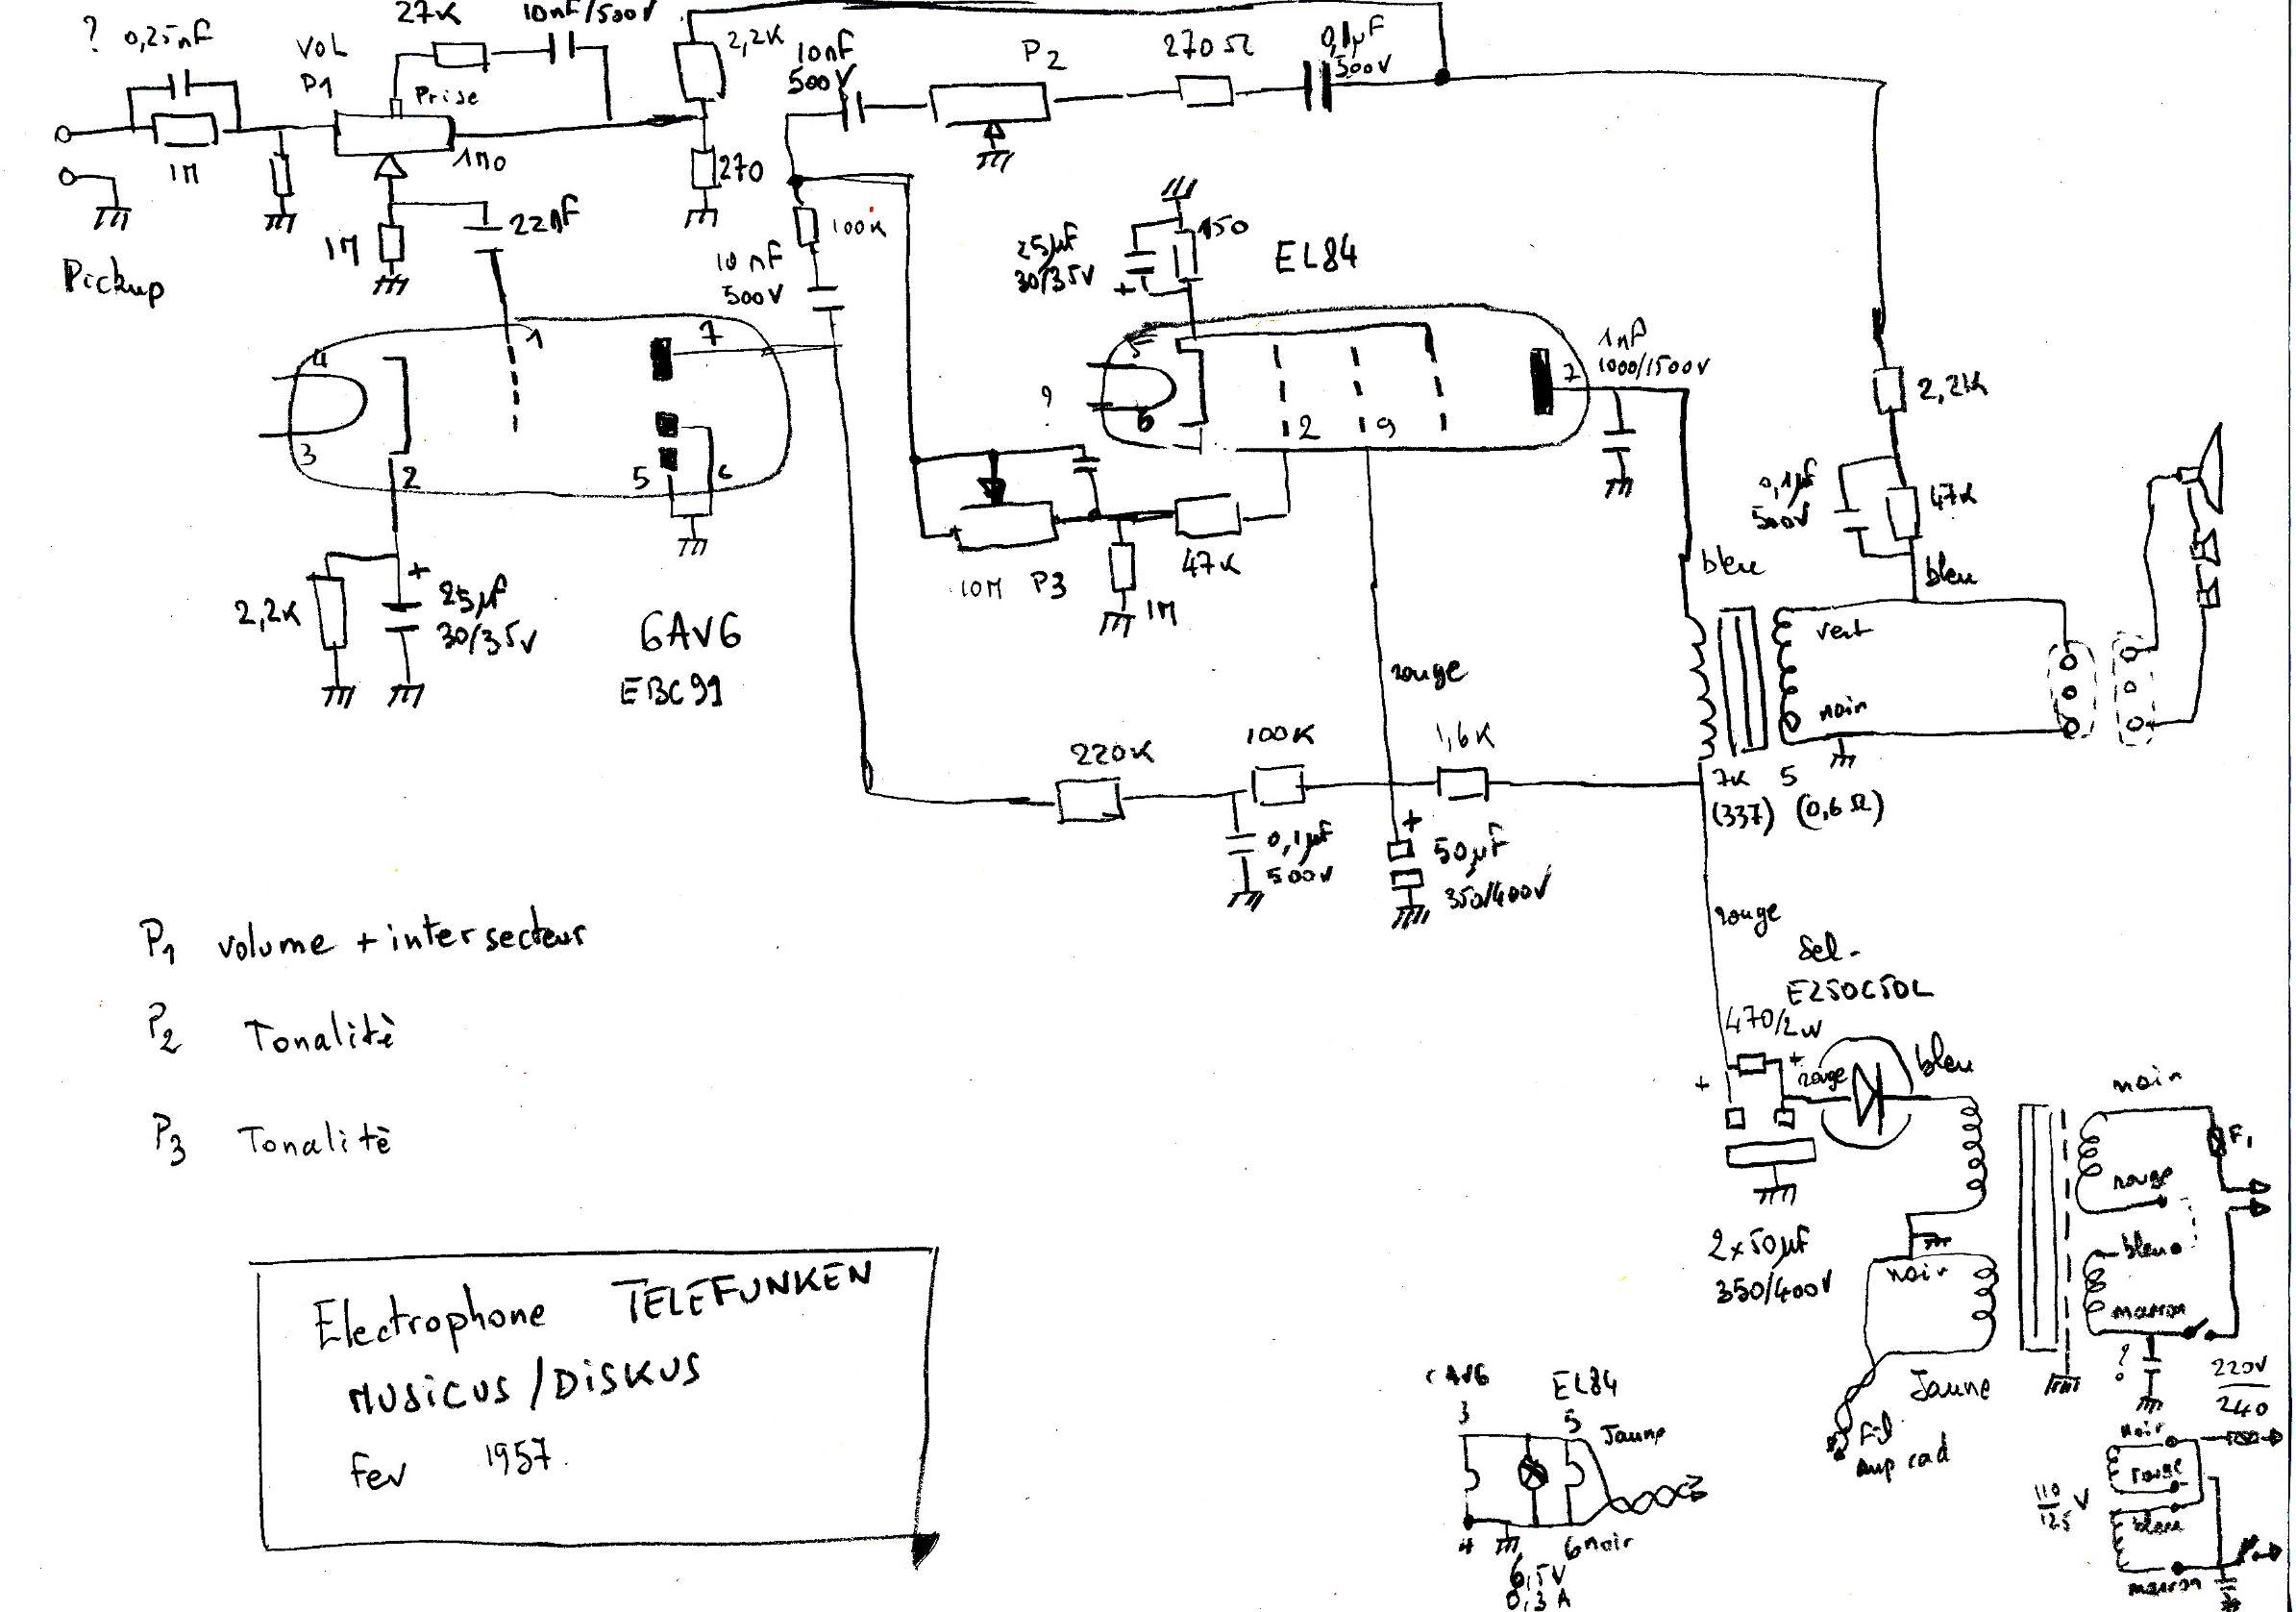 ? 0,25nF
VOL
P1
27K
10nF/500V
Prise
1M
1M0
1M
22nF
Pickup
2,2K
270
10nF
500V
P2
270Ω
0,1µF
500V
100K
10nF
500V
25µF
30/35V
150
EL84
1nF
1000/1500V
4
3
2
1
7
5
6
2,2K
+
25µF
30/35V
6AV6
EBC91
?
5
6
2
9
7
+
10M
P3
47K
1M
2,2K
0,1µF
500V
47K
bleu
bleu
vert
noir
rouge
220K
100K
1,6K
7K
5
(337)
(0,6Ω)
0,1µF
500V
+
50µF
350/400V
rouge
Sel-
E250C50L
470/2W
+
+
rouge
bleu
2x50µF
350/400V
noir
Jaune
Fil
Amp cad
noir
F1
rouge
bleu
marron
?
220V
240
noir
rouge
bleu
marron
110
125
V
P1 volume + inter secteur
P2 Tonalitè
P3 Tonalitè
Electrophone TELEFUNKEN
MUSICUS/DISKUS
Fev 1957
AV6
EL84
3
5
Jaune
4
6 noir
6,5V
0,3A